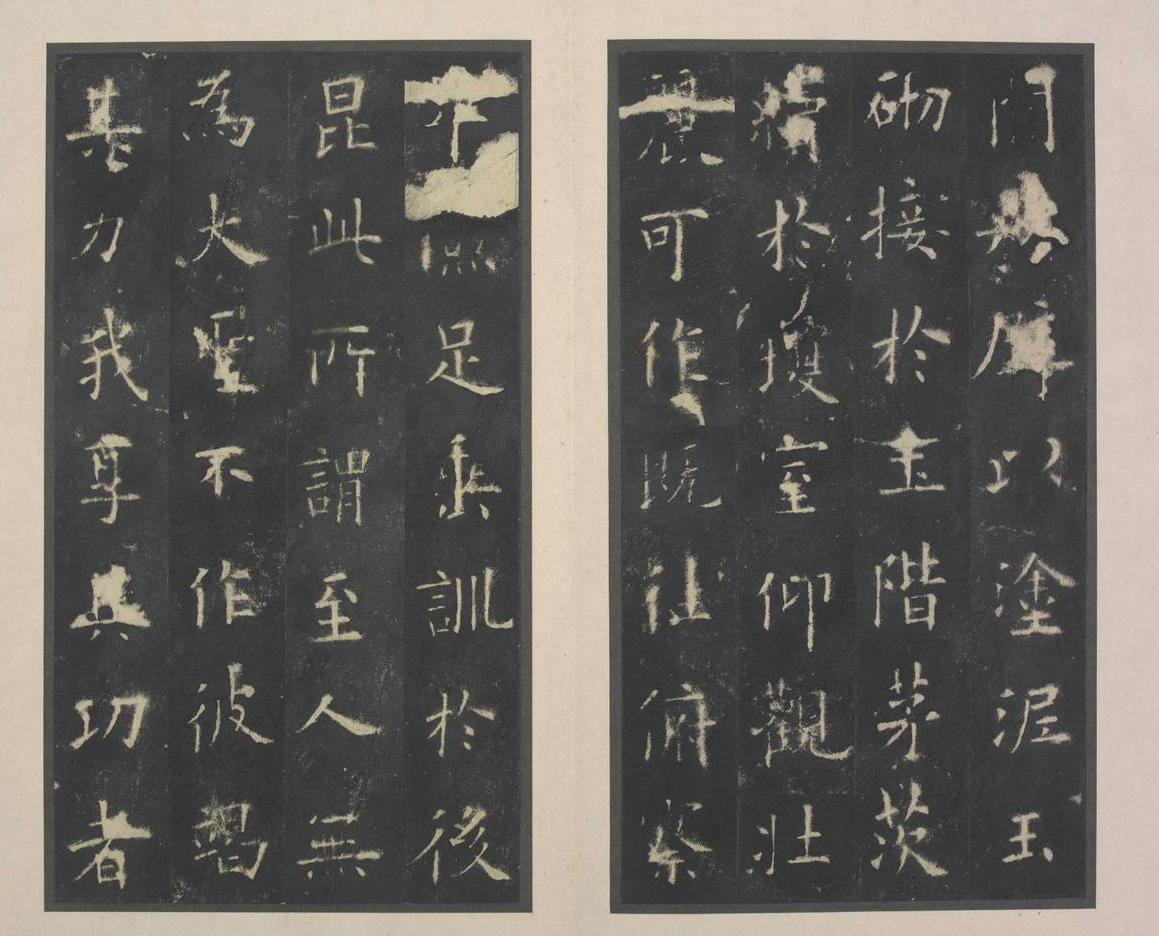 間粉壁以塗泥玉
砌接於土階茅茨
續於瓊室仰觀壯
麗可作既往俯察
卑儉足垂訓於後
昆此所謂至人無
為大聖不作彼竭
其力我享其功者